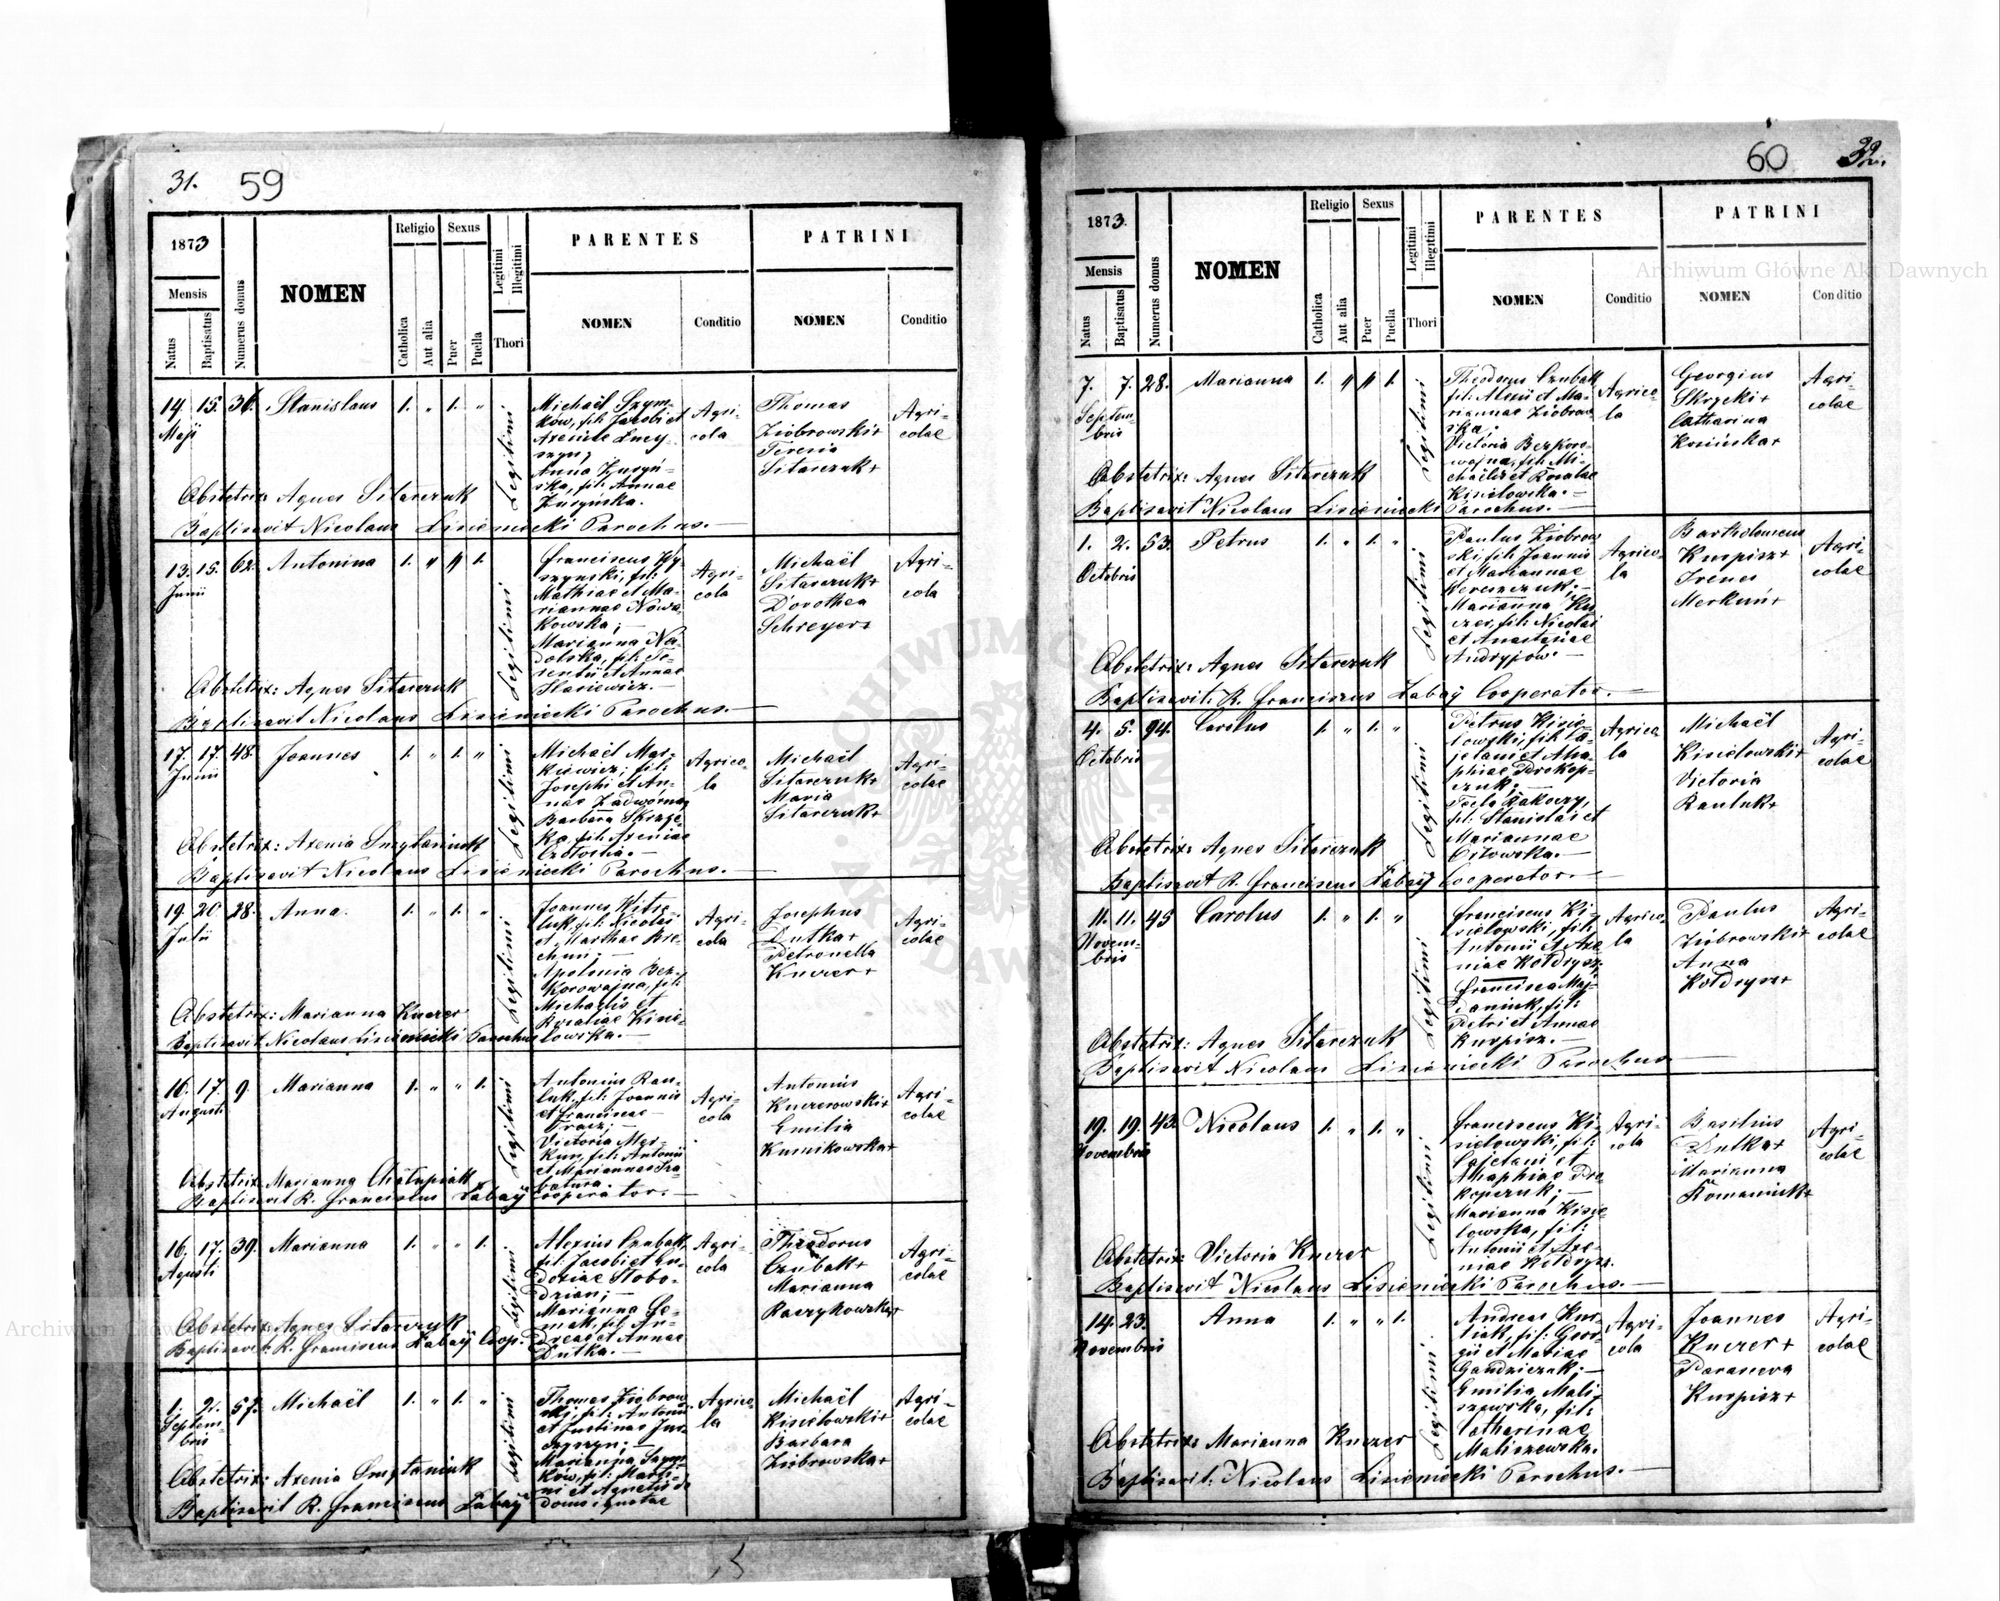 31. 59
1873
Mensis
Natus
Baptisatus
Numerus domus
NOMEN
Religio
Catholica
Aut alia
Sexus
Puer
Puella
Legitimi
Illegitimi
Thori
PARENTES
NOMEN
Conditio
PATRINI
NOMEN
Conditio
14. 15. Stanislaus 1. „ 1. „
Maji
Legitimi
Michaël Szym-
ków, fil: Jacobi et
Anna
ska, fil: Annae
Agri-
cola
Thomas
Ziobrowski+
Teresia
Sitarczuk+
Agri-
colae
Abstetrix: Agnes Sitarczuk
Baptisavit Nicolaus Lisieniecki Parochus.—
13. 15. 62. Antonina 1. „ „ 1.
Junii
Legitimi
Franciscus
szynski, fil:
Mathiae et Ma-
riannae Nowa-
kowska; —
Marianna Na-
dolska, fil: Te-
rentii et Annae
Agri-
cola
Michaël
Sitarczuk+
Dorothea
Schreyer+
Agri-
cola
Abstetrix: Agnes Sitarczuk
Baptisavit Nicolaus Lisieniecki Parochus.—
17. 17. 48. Joannes 1. „ 1. „
Junii
Legitimi
Michaël Mar-
kiewicz; fil:
Josephi et An-
nae Zadworna,
Barbara
ka, fil: Axeniae
Agrico-
la
Michaël
Sitarczuk+
Maria
Sitarczuk+
Agri-
colae
Abstetrix: Axenia Smytaniuk
Baptisavit Nicolaus Lisieniecki Parochus.—
19. 20. 28. Anna. 1. „ 1. „
Julii
Legitimi
Joannes
luk, fil: Nicolai
et Marthae Kre-
chun; —
Apolonia Bez-
korowajna, fil:
Michaelis et
Rosaliae Kisie-
lowska.—
Agri-
cola
Josephus
Dutka+
Petronella
Kuczer+
Agri-
colae
Abstetrix: Marianna Kuczer
Baptisavit Nicolaus Lisieniecki Parochus
16. 17. 9. Marianna 1. „ „ 1.
Augusti
Legitimi
Antonius Rau-
luk, fil: Joannis
et Franciscae
Tracz; —
Victoria Mer-
kun, fil: Antonii
et Mariannae
Agri-
cola
Antonius
Kuczerowski+
Emilia
Kumikowska+
Agri-
colae
Abstetrix: Marianna Chałupiak
Baptisavit R. Franciscus Łabaÿ Cooperator.—
16. 17. 39. Marianna 1. „ „ 1.
Agusti
Legitimi
Alexius Czubak,
fil: Jacobi et Eu-
doxiae Słobo-
dzian; —
Marianna Se-
niak, fil: An-
dreae et Annae
Dutka.—
Agri-
cola
Theodorus
Czubak+
Marianna
Raczykowska+
Agri-
colae
Abstetrix: Agnes Sitarczuk
Baptisavit: R. Franciscus Łabaÿ Coop.
1. 2. 57. Michaël 1. „ 1. „
Septem-
bris
Legitimi
Thomas Ziobrow-
ski, fil: Antonii
et Justinae
Marianna Szym-
ków, fil: Marti-
ni et Agnetis de
domo ignotae
Agrico-
la
Michaël
Kisielowski+
Barbara
Ziobrowska+
Agri-
colae
Abstetrix: Axenia Smytaniuk
Baptisavit R. Franciscus Łabaÿ
60 32.
1873.
Mensis
Natus
Baptisatus
Numerus domus
NOMEN
Religio
Catholica
Aut alia
Sexus
Puer
Puella
Legitimi
Illegitimi
Thori
PARENTES
NOMEN
Conditio
PATRINI
NOMEN
Conditio
7. 7. 28. Marianna 1. „ „ 1.
Septem-
bris
Legitimi
Theodorus Czubak
fil: Alexii et Ma-
riannae Ziobrow-
ska;
Victoria Bezkoro-
wajna, fil: Mi-
chaëlis et Rosaliae
Kisielowska.—
Agrico-
la
Georgius
Skrycki+
Catharina
Kosińska+
Agri-
colae
Abstetrix: Agnes Sitarczuk
Baptisavit Nicolaus Lisieniecki Parochus.—
1. 2. 53. Petrus 1. „ 1. „
Octobris
Legitimi
Paulus Ziobrow-
ski, fil: Joannis
et Mariannae
Wereszczuk; —
Marianna Ku-
czer, fil: Nicolai
et Anastasiae
Andryjów.—
Agrico-
la
Bartholomeus
Kurpisz+
Irenes
Merkun+
Agri-
colae
Abstetrix: Agnes Sitarczuk
Baptisavit: R. Franciscus Łabaÿ Cooperator.—
4. 5. 94. Carolus 1. „ 1. „
Octobris
Legitimi
Petrus Kisie-
lowski, fil: Ca-
jetani et Aha-
phiae Prokop-
czuk; —
Tecla Rakoczy,
fil: Stanislai et
Mariannae
Agrico-
la
Michaël
Kisielowski+
Victoria
Rauluk+
Agri-
colae
Abstetrix: Agnes Sitarczuk
Baptisavit R. Franciscus Łabaÿ Cooperator.—
11. 11. 45 Carolus 1. „ 1. „
Novem-
bris
Legitimi
Franciscus Ki-
sielowski, fil:
Antonii et Axe-
niae Kołdrysz;
Francisca Maj-
daniuk, fil:
Petri et Annae
Kurpisz.—
Agrico-
la
Paulus
Ziobrowski+
Anna
Kołdrysz+
Agri-
colae
Abstetrix: Agnes Sitarczuk
Baptisavit Nicolaus Lisieniecki Parochus—
19. 19. 43. Nicolaus 1. „ 1. „
Novembris
Legitimi.
Franciscus Ki-
sielowski, fil:
Cajetani et
Ahaphiae Pro-
kopczuk; —
Marianna Kisie-
lowska, fil:
Antonii et Axe-
niae Kołdrysz.
Agri-
cola
Basilius
Dutka+
Marianna
Romaniuk+
Agri-
colae
Abstetrix: Victoria Kuczer
Baptisavit Nicolaus Lisieniecki Parochus.—
14. 23. Anna 1. „ „ 1.
Novembris
Legitimi.
Andreas Kur-
tiak, fil: Geor-
gii et Mariae
Gandziczuk; —
Emilia Mali-
szewska, fil:
Catharinae
Maliszewska.
Agri-
cola
Joannes
Kuczer+
Parasceva
Kurpisz+
Agri-
colae
Abstetrix: Marianna Kuczer
Baptisavit: Nicolaus Lisieniecki Parochus.—
Archiwum Główne Akt Dawnych